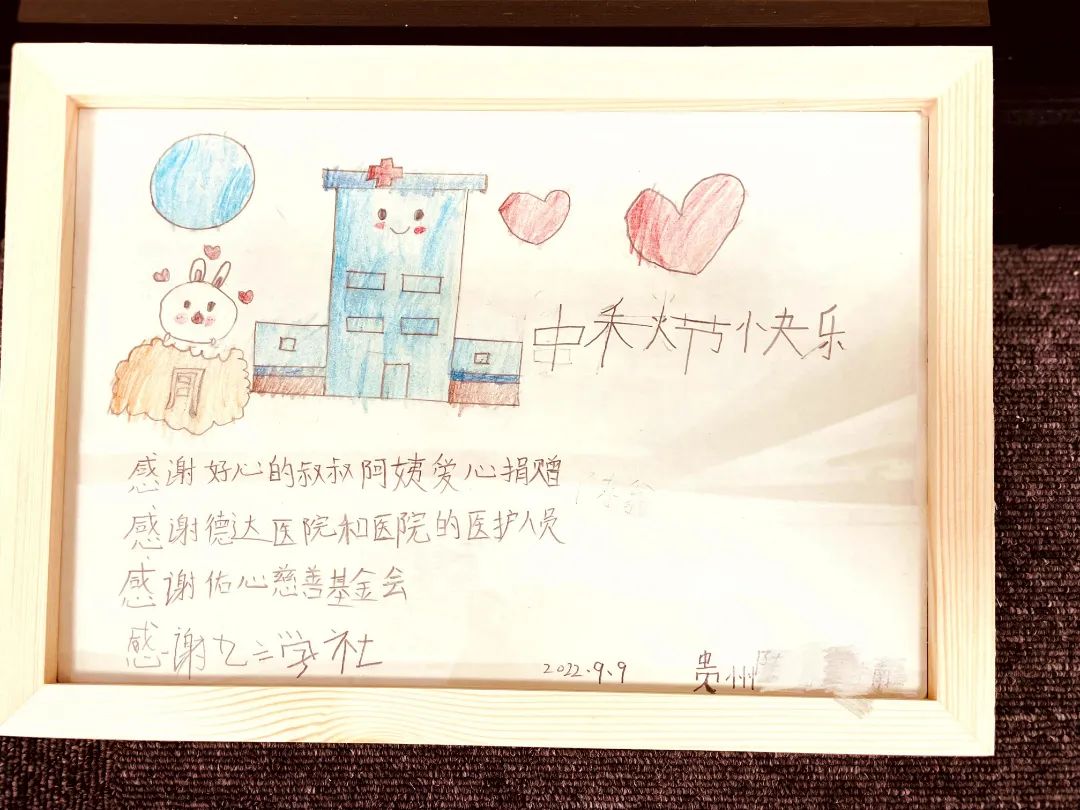 月
中秋节快乐
感谢好心的叔叔阿姨爱心捐赠
感谢德达医院和医院的医护人员
感谢佑心慈善基金会
感谢九三学社
2022.9.9
贵州